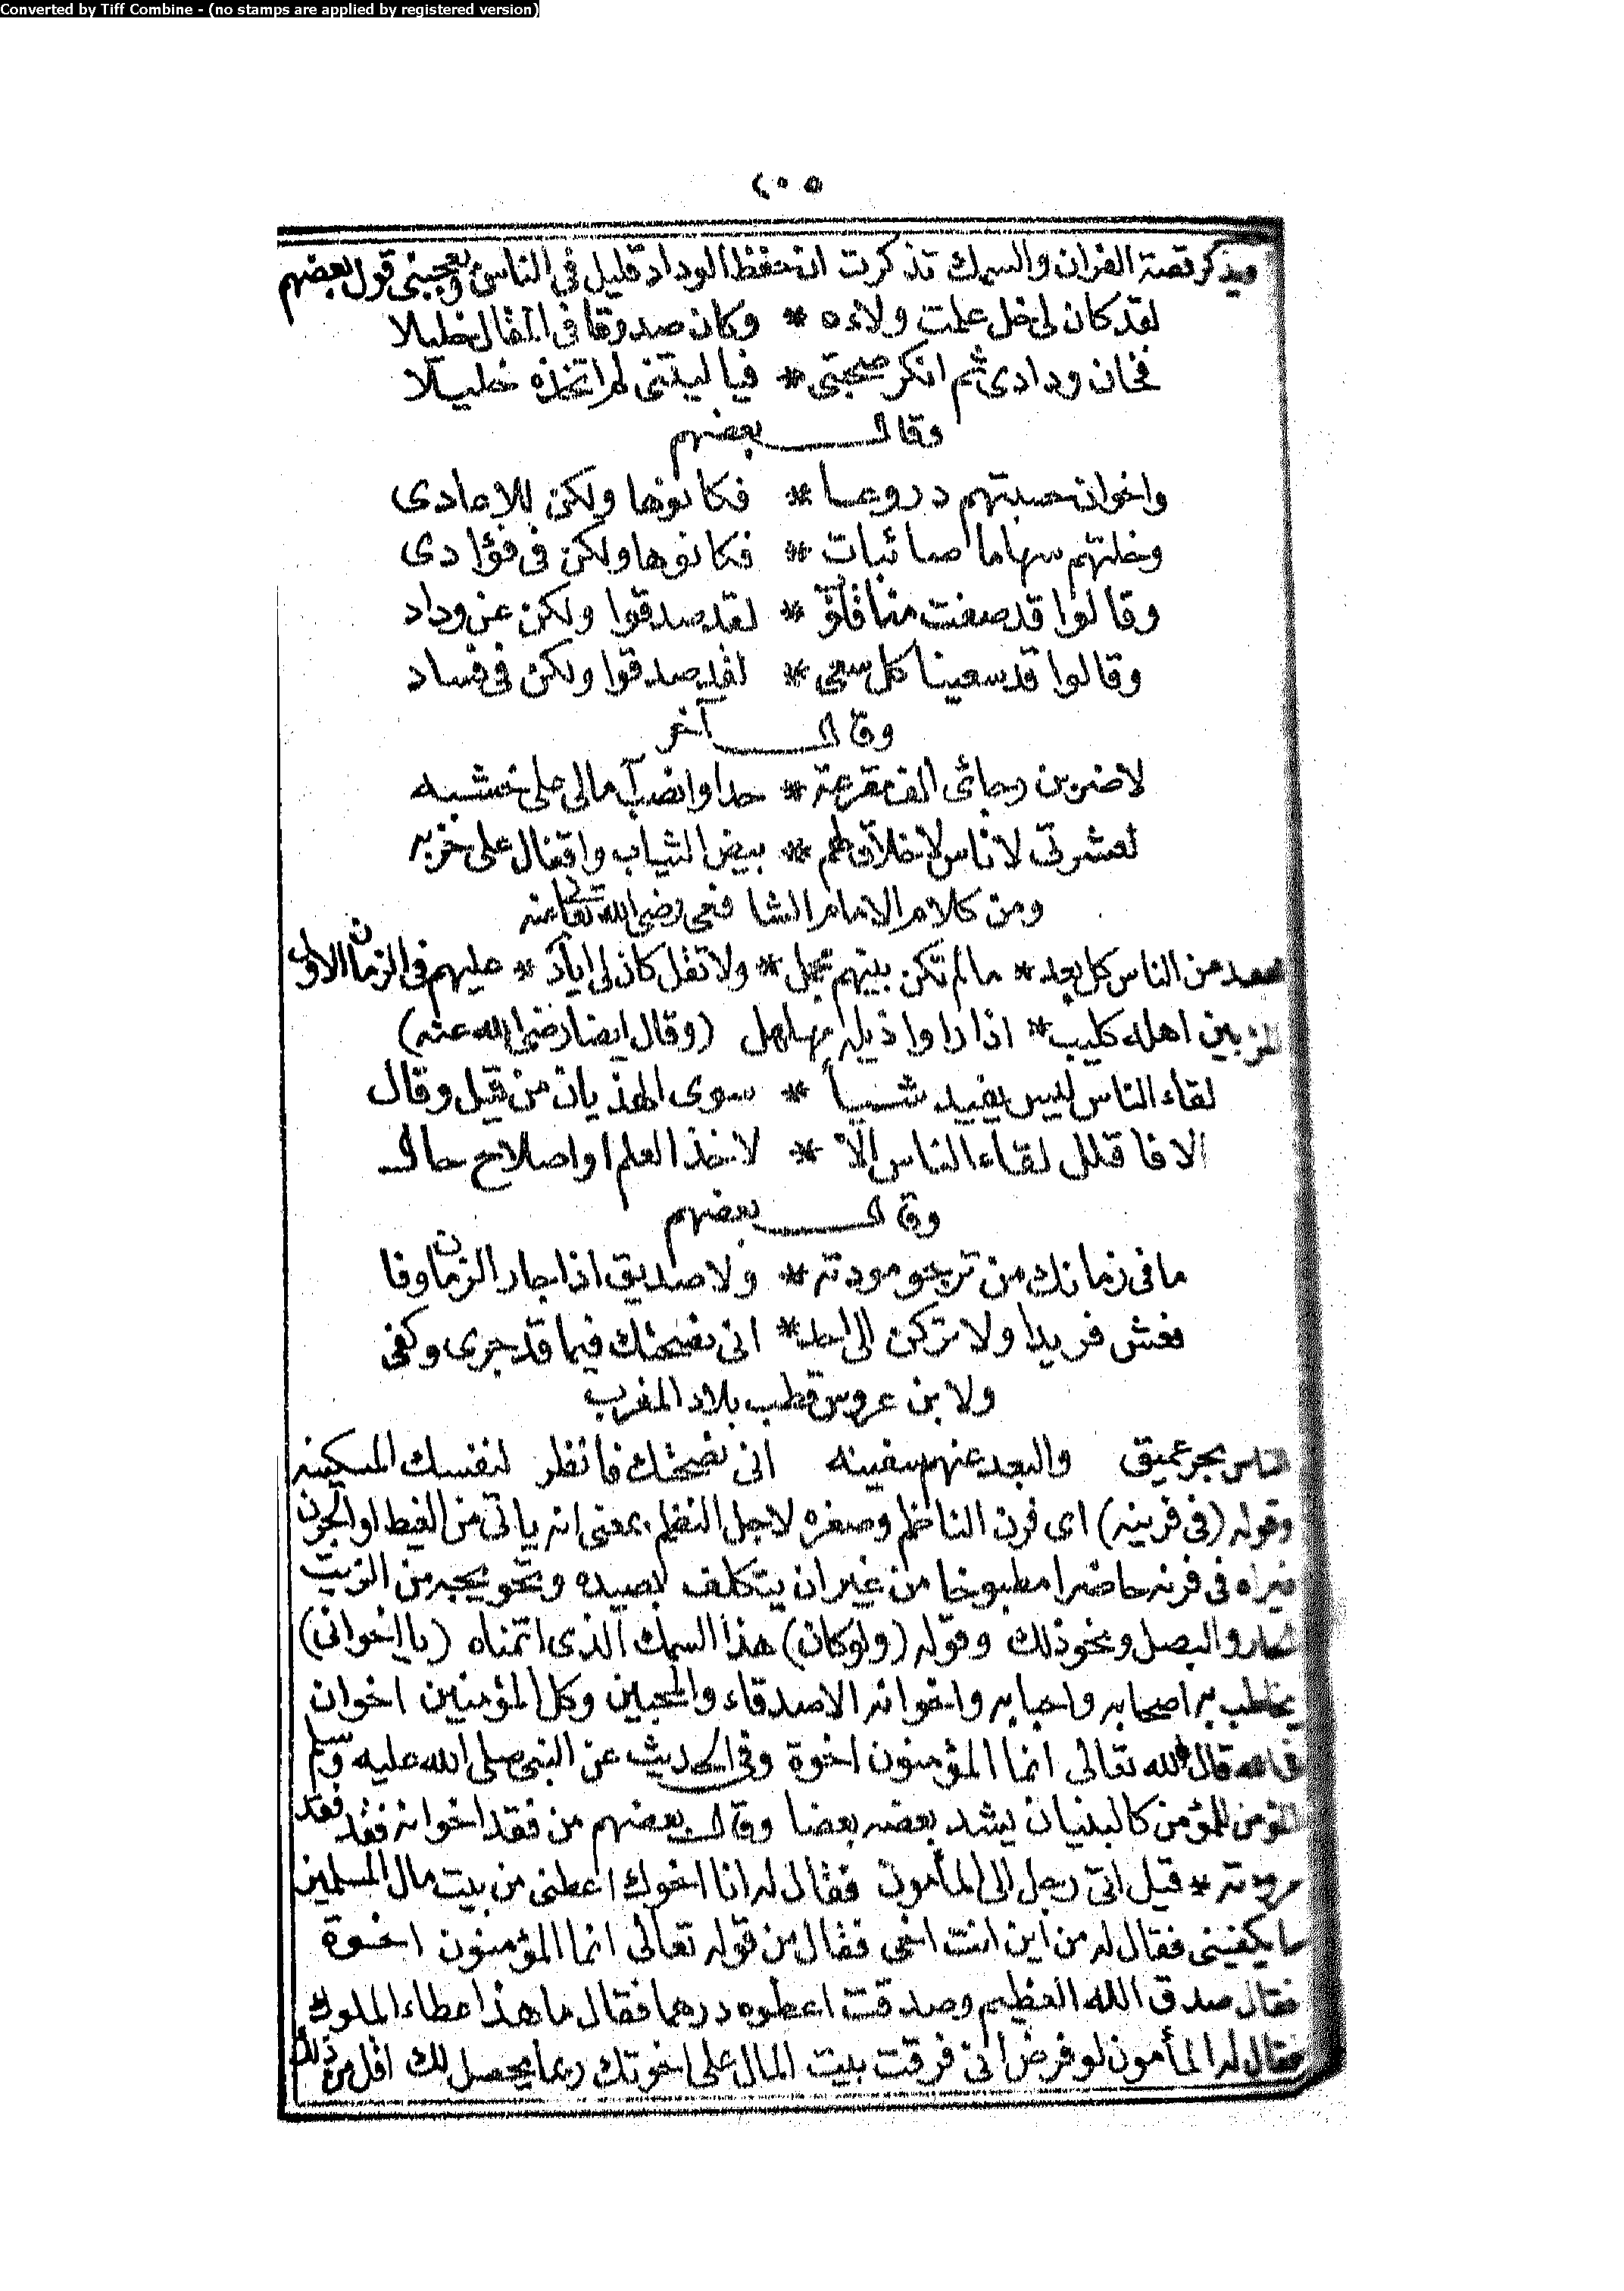 Converted by Tiff Combine - (no stamps are applied by registered version)
٢٠٥
وبذكر قصة الفران والسمك تذكرت ان حفظ الوداد قليل فى الناس ويعجبنى قول بعضهم
لقد كان لى خل علمت ولاءه * وكان صدوقا فى المقال خليلا
فخان ودادى ثم انكر صحبتى * فيا ليتنى لم اتخذه خليلا
وقال بعضهم
واخوان حسبتهم دروعا * فكانوها ولكن للاعادى
وخلتهم سهاما صائبات * فكانوها ولكن فى فؤادى
وقالوا قد صفت منا قلوب * لقد صدقوا ولكن عن وداد
وقالوا قد سعينا كل سعى * لقد صدقوا ولكن فى فساد
وقال آخر
لاضربن رجائى الف مقرعة * حدا وانصب آمالى على خشبه
لعشرتى لاناس لا خلاق لهم * بيض الثياب واقفال على خربه
ومن كلام الامام الشافعى رضى الله تعالى عنه
من الناس كل بعد * ما لم تكن بينهم بجل * ولا تقل كان لى اياد * عليهم فى الزمان الاول
بين اهله كليب * اذا راوا ذيله مهلهل (وقال ايضا رضى الله عنه)
لقاء الناس ليس يفيد شيأ * سوى الهذيان من قيل وقال
الا فاقلل لقاء الناس الا * لاخذ العلم او اصلاح حال
وقال بعضهم
ما فى زمانك من ترجو مودته * ولا صديق اذا جار الزمان وفا
فعش فريدا ولا تركن الى احد * انى نصحتك فيما قد جرى وكفى
ولابن عروس قطب بلاد المغرب
الناس بحر عميق والبعد عنهم سفينه انى نصحتك فانظر لنفسك المسكينه
وقوله (فى فرينه) اى فرن الناظم وصغره لاجل النظم بمعنى انه ياتى من الغيط او الجرن
فيراه فى فرنه حاضرا مطبوخا من غير ان يتكلف لصيده ونحو يجبه من الزيت
والبصل ونحو ذلك وقوله (ولو كان) هذا السمك الذى اتمناه (يا اخوانى)
يخاطب به اصحابه واحبابه واخوانه الاصدقاء والمحبين وكل المؤمنين اخوان
قال الله تعالى انما المؤمنون اخوة وفى الحديث عن النبى صلى الله عليه وسلم
المؤمن للمؤمن كالبنيان يشد بعضه بعضا وقال بعضهم من فقد اخوانه فقد فقد
مروءته * قيل اتى رجل الى المأمون فقال له انا اخوك اعطنى من بيت مال المسلمين
ما يكفينى فقال له من اين انت اخى فقال من قوله تعالى انما المؤمنون اخوة
فقال صدق الله العظيم وصدقت اعطوه درهما فقال ما هذا عطاء الملوك
فقال له المأمون لو فرض انى فرقت بيت المال على اخوتك ربما يحصل لك اقل من ذلك